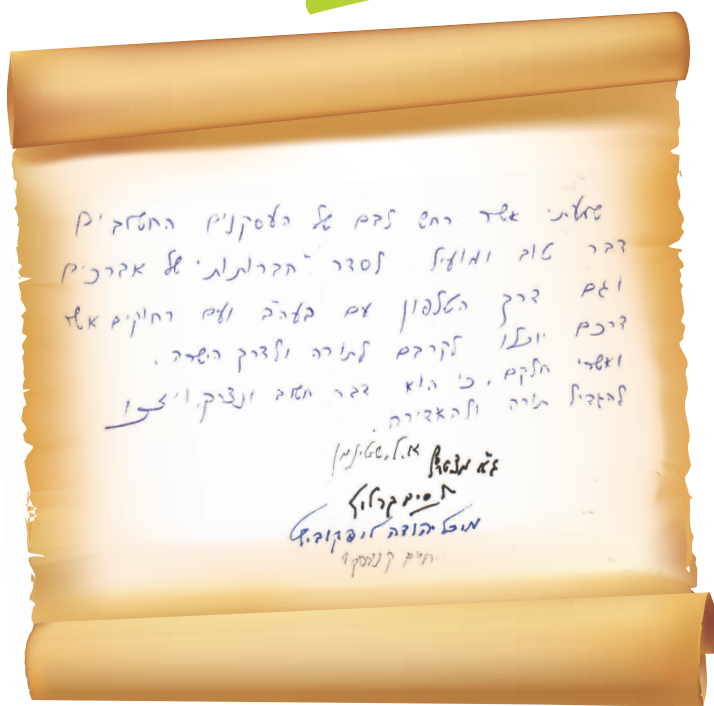 שמעתי אשר רחש לבם של העסקנים החשובים
דבר טוב ומועיל לסדר "חברותות" של אברכים
וגם דרך הטלפון עם בעה"ב ועם רחוקים אשר
דרכם יוכלו לקרבם לתורה ולדרך הישרה.
ואשרי חלקם, כי הוא דבר חשוב ונצרך, ויזכו
להגדיל תורה ולהאדירה.
א.ל. שטינמן
נ. קרליץ
מיכל יהודה ליפקוביץ
חיים קניבסקי